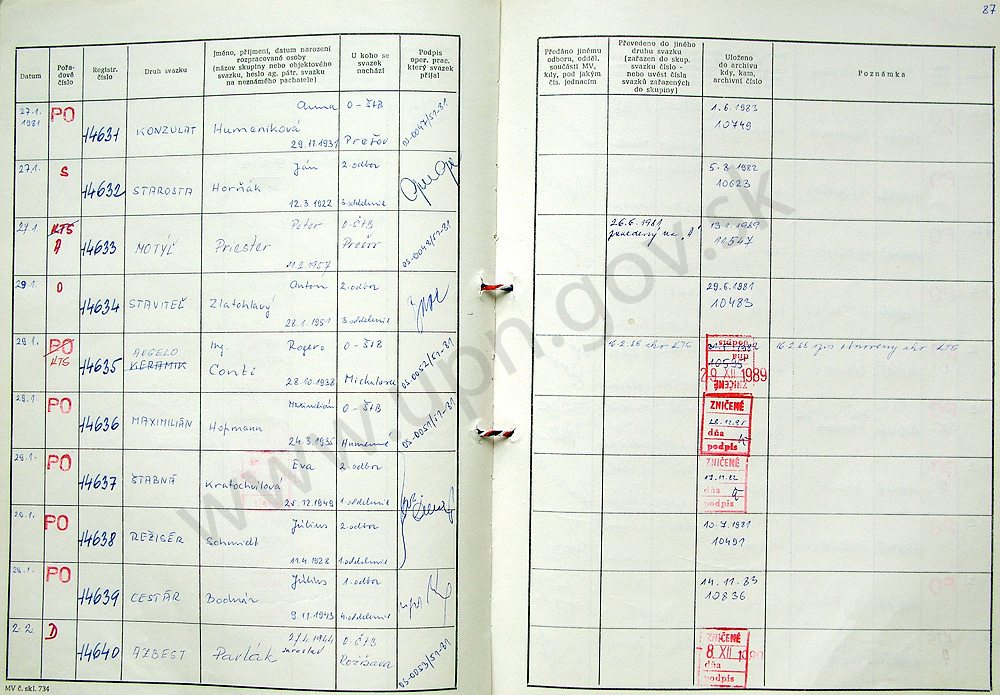 87
Datum
Pořa-
dové
číslo
Registr.
číslo
Druh svazku
Jméno, příjmení, datum narození
rozpracované osoby
(název skupiny nebo objektového
svazku, heslo ag. pátr. svazku
na neznámého pachatele)
U koho se
svazek
nachází
Podpis
oper. prac.
který svazek
přijal
Předáno jinému
odboru, odděl.
součásti MV,
kdy, pod jakým
čís. jednacím
Převedeno do jiného
druhu svazku
(zařazen do skup.
svazku číslo -
nebo uvést čísla
svazků zařazených
do skupiny)
Uloženo
do archivu
kdy, kam,
archivní číslo
Poznámka
27.1.
1981
PO
14631
KONZULAT
Anna
Humeníková
29.11.1931
O-ŠtB
Prešov
OS-0047/51-81
1.6.1983
10749
27.1.
S
14632
STAROSTA
Ján
Horňák
12.3.1922
2. odbor
3. oddelenie
5.8.1982
10623
27.1.
KTS
A
14633
MOTÝĽ
Peter
Priester
11.2.1957
O-ŠtB
Prešov
OS-0048/51-81
26.6.1981
zavedený na "A"
13.1.1989
11547
29.1.
O
14634
STAVITEĽ
Anton
Zlatohlavý
28.1.1951
2. odbor
3. oddelenie
29.6.1981
10483
29.1.
PO
KTS
14635
ANGELO
KERAMIK
Ing. Rogero
Conti
28.10.1938
O-ŠtB
Michalovce
OS-0052/51-81
10595
29 XII 1989
ZNIČENÉ
29.1.
PO
14636
MAXIMILIÁN
Maximilián
Hopmann
24.3.1935
O-ŠtB
Humenné
OS-0051/51-81
ZNIČENÉ
dňa
podpis
29.1.
PO
14637
ŠTABNÁ
Eva
Kratochvílová
25.12.1949
2. odbor
1. oddelenie
ZNIČENÉ
dňa
podpis
29.1.
PO
14638
REŽISÉR
Július
Schmidt
11.4.1928
2. odbor
1. oddelenie
10.7.1981
10491
29.1.
PO
14639
CESTÁR
Július
Bodnár
9.11.1943
1. odbor
4. oddelenie
14.11.83
10836
2.2.
D
14640
AZBEST
27.4.1944
Jaroslav
Pavlák
O-ŠtB
Rožňava
OS-0053/51-81
ZNIČENÉ
8. XII 1990
dňa
podpis
MV č. skl. 734
www.upn.gov.sk